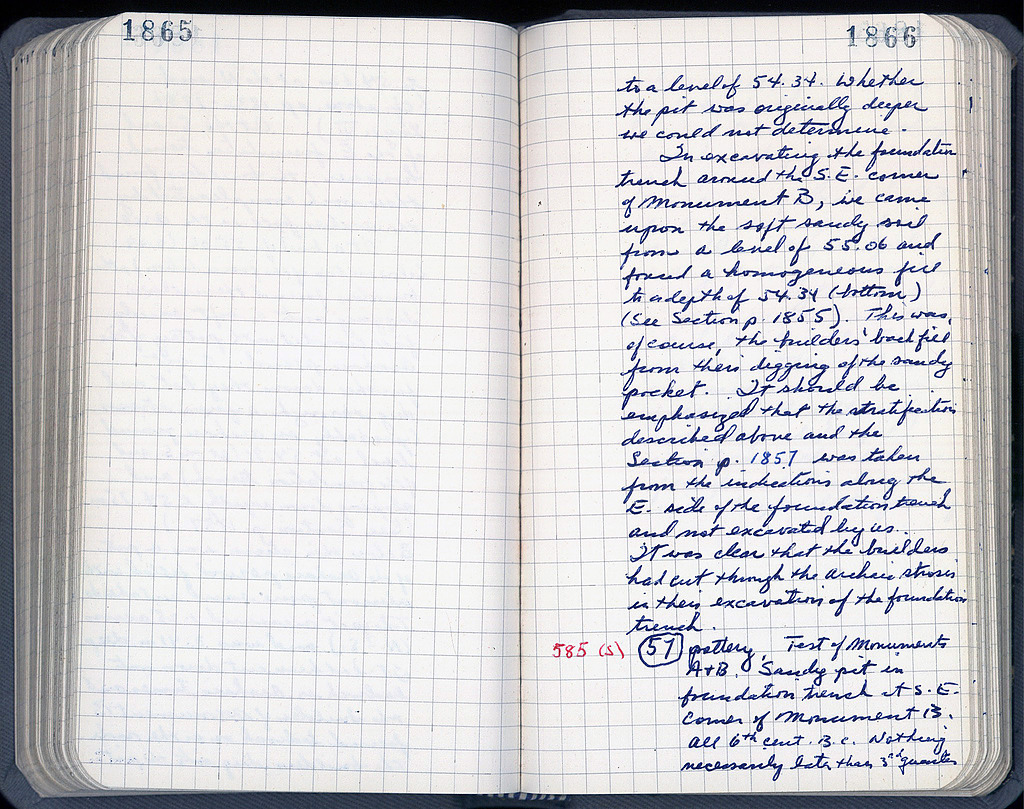 1865
1866
to a level of 54.34. Whether
the pit was originally deeper
we could not determine.
In excavating the foundation
trench around the S.E. corner
of Monument B, we came
upon the soft sandy soil
from a level of 55.06 and
found a homogeneous fill
to a depth of 54.34 (bottom)
(See Section p. 1855). This was,
of course, the builders' back fill
from their digging of the sandy
pocket. It should be
emphasized that the stratification
described above and the
Section p. 1857 was taken
from the indications along the
E. side of the foundation trench
and not excavated by us.
It was clear that the builders
had cut through the archaic strosis
in their excavation of the foundation
trench.
585 (s) 57 pottery. Test of Monuments
A+B. Sandy pit in
foundation trench at S.E.
corner of Monument B.
All 6th cent. B.C. Nothing
necessarily later than 3rd quarter